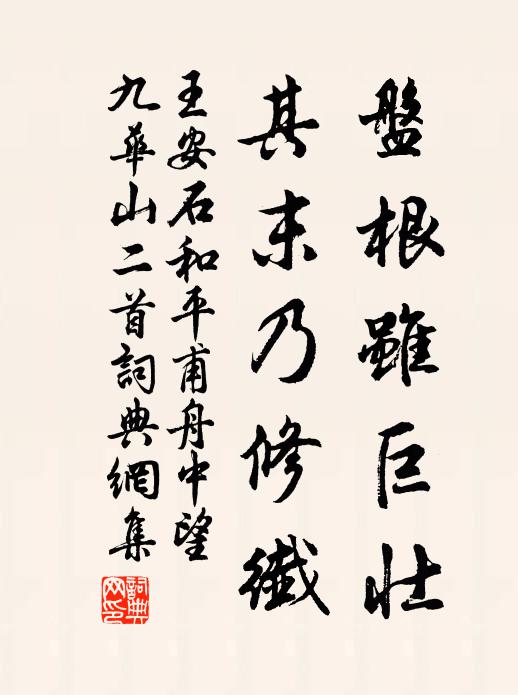 盤根雖巨壯
其末乃修纖
王安石和平甫舟中望
九華山二首詞典網集
詞典网印